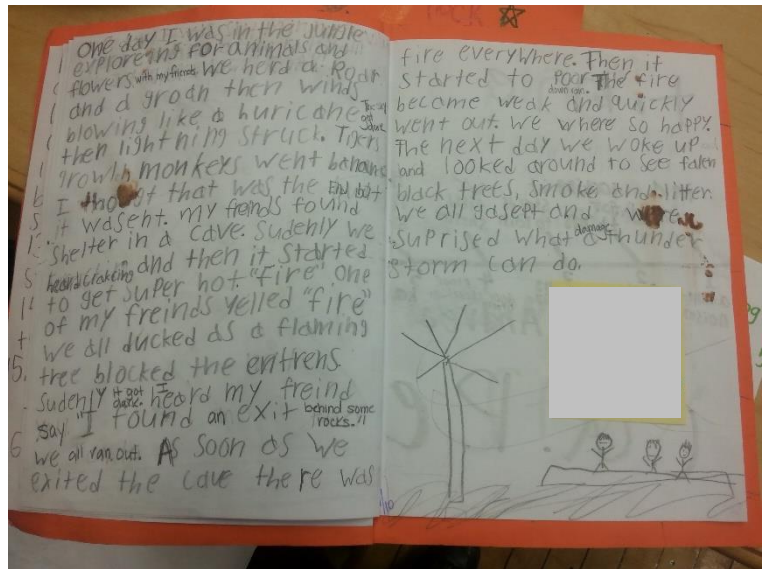 One day I was in the jungle
exploreing for animals and
flowers with my friends. We herd a Roar
and a groan then winds
blowing like a huricane
then lightning struck. Tigers
growln monkeys went banana
I thought that was the End but
it wasent. my freinds found
Shelter in a cave. Sudenly we
heard craking and then it started
to get super hot. "Fire" One
of my freinds yelled "fire"
we all ducked as a flaming
tree blocked the entrens
Sudenly it got dark. I heard my freind
say "I found an exit behind some rocks."
we all ran out. As soon as we
exited the cave there was
fire everywhere. Then it
started to poor down rain. The fire
became weak and quickly
went out. We where so happy.
The next day we woke up
and looked around to see fallen
black trees, smoke and litter.
we all gasept and were
suprised what damage a thunder
storm can do.